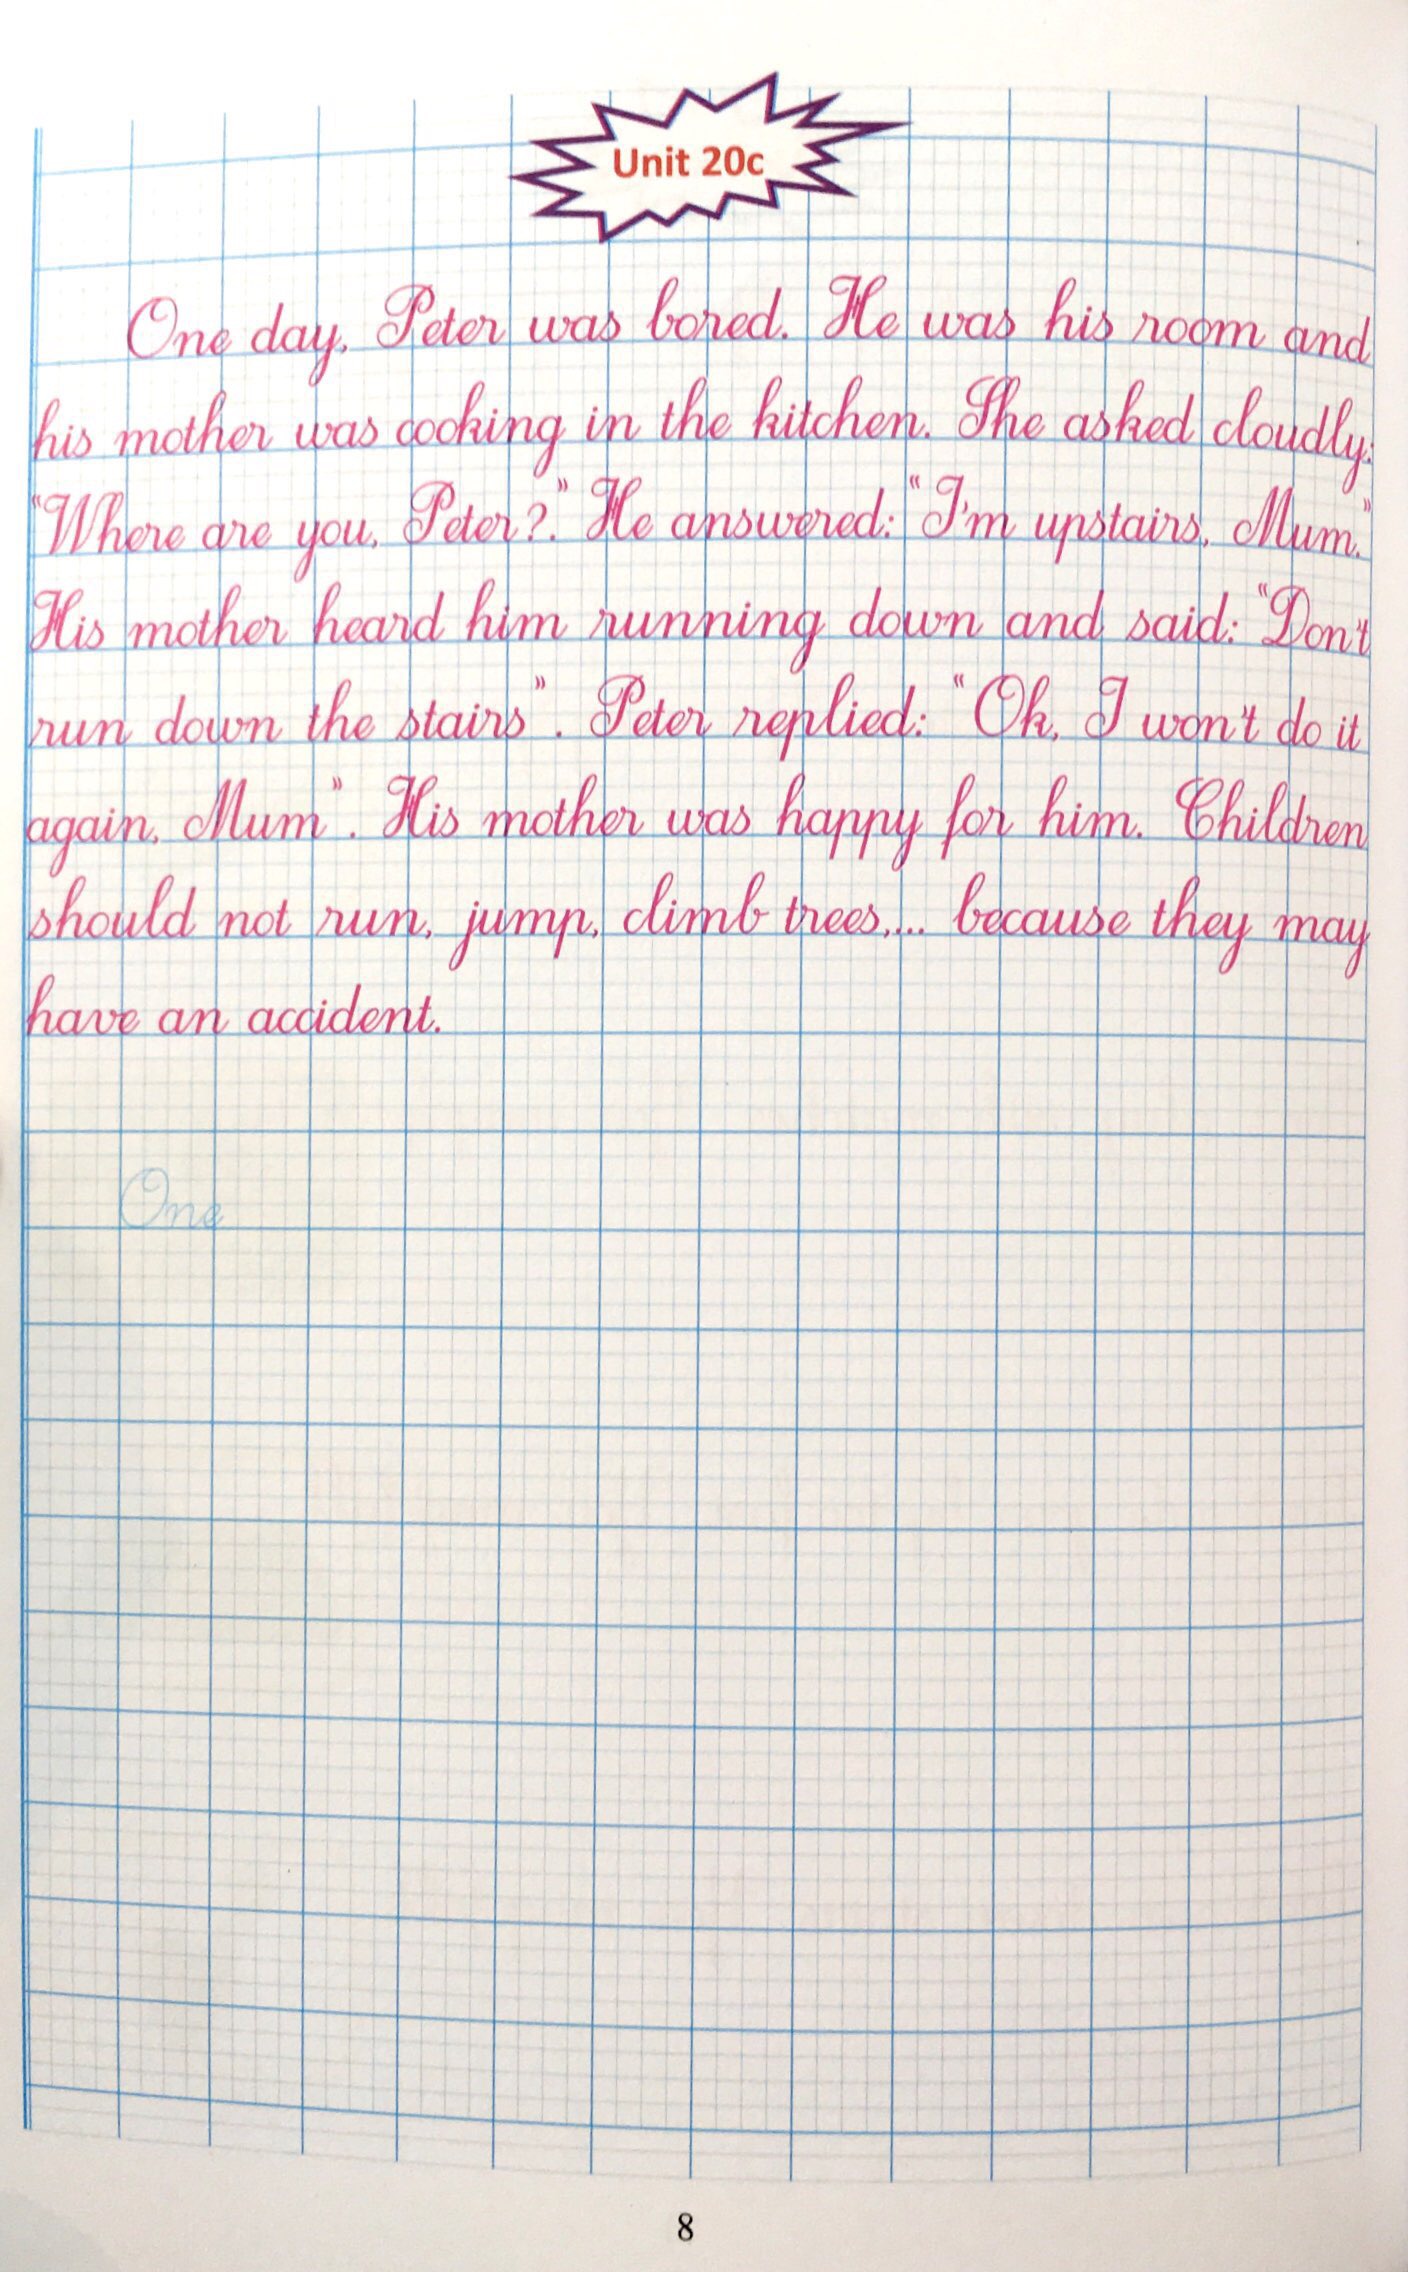 Unit 20c
One day, Peter was bored. He was his room and
his mother was cooking in the kitchen. She asked cloudly:
"Where are you, Peter?." He answered: "I'm upstairs, Mum."
His mother heard him running down and said: "Don't
run down the stairs". Peter replied: "Ok, I won't do it
again, Mum". His mother was happy for him. Children
should not run, jump, climb trees,... because they may
have an accident.
One
8